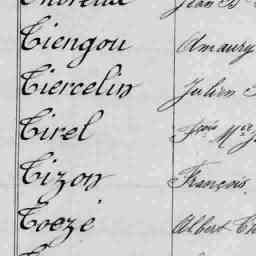 Tiengou Amaury
Tiercelin Julien
Tirel Fçois Mie
Tizon François
Toezé Albert